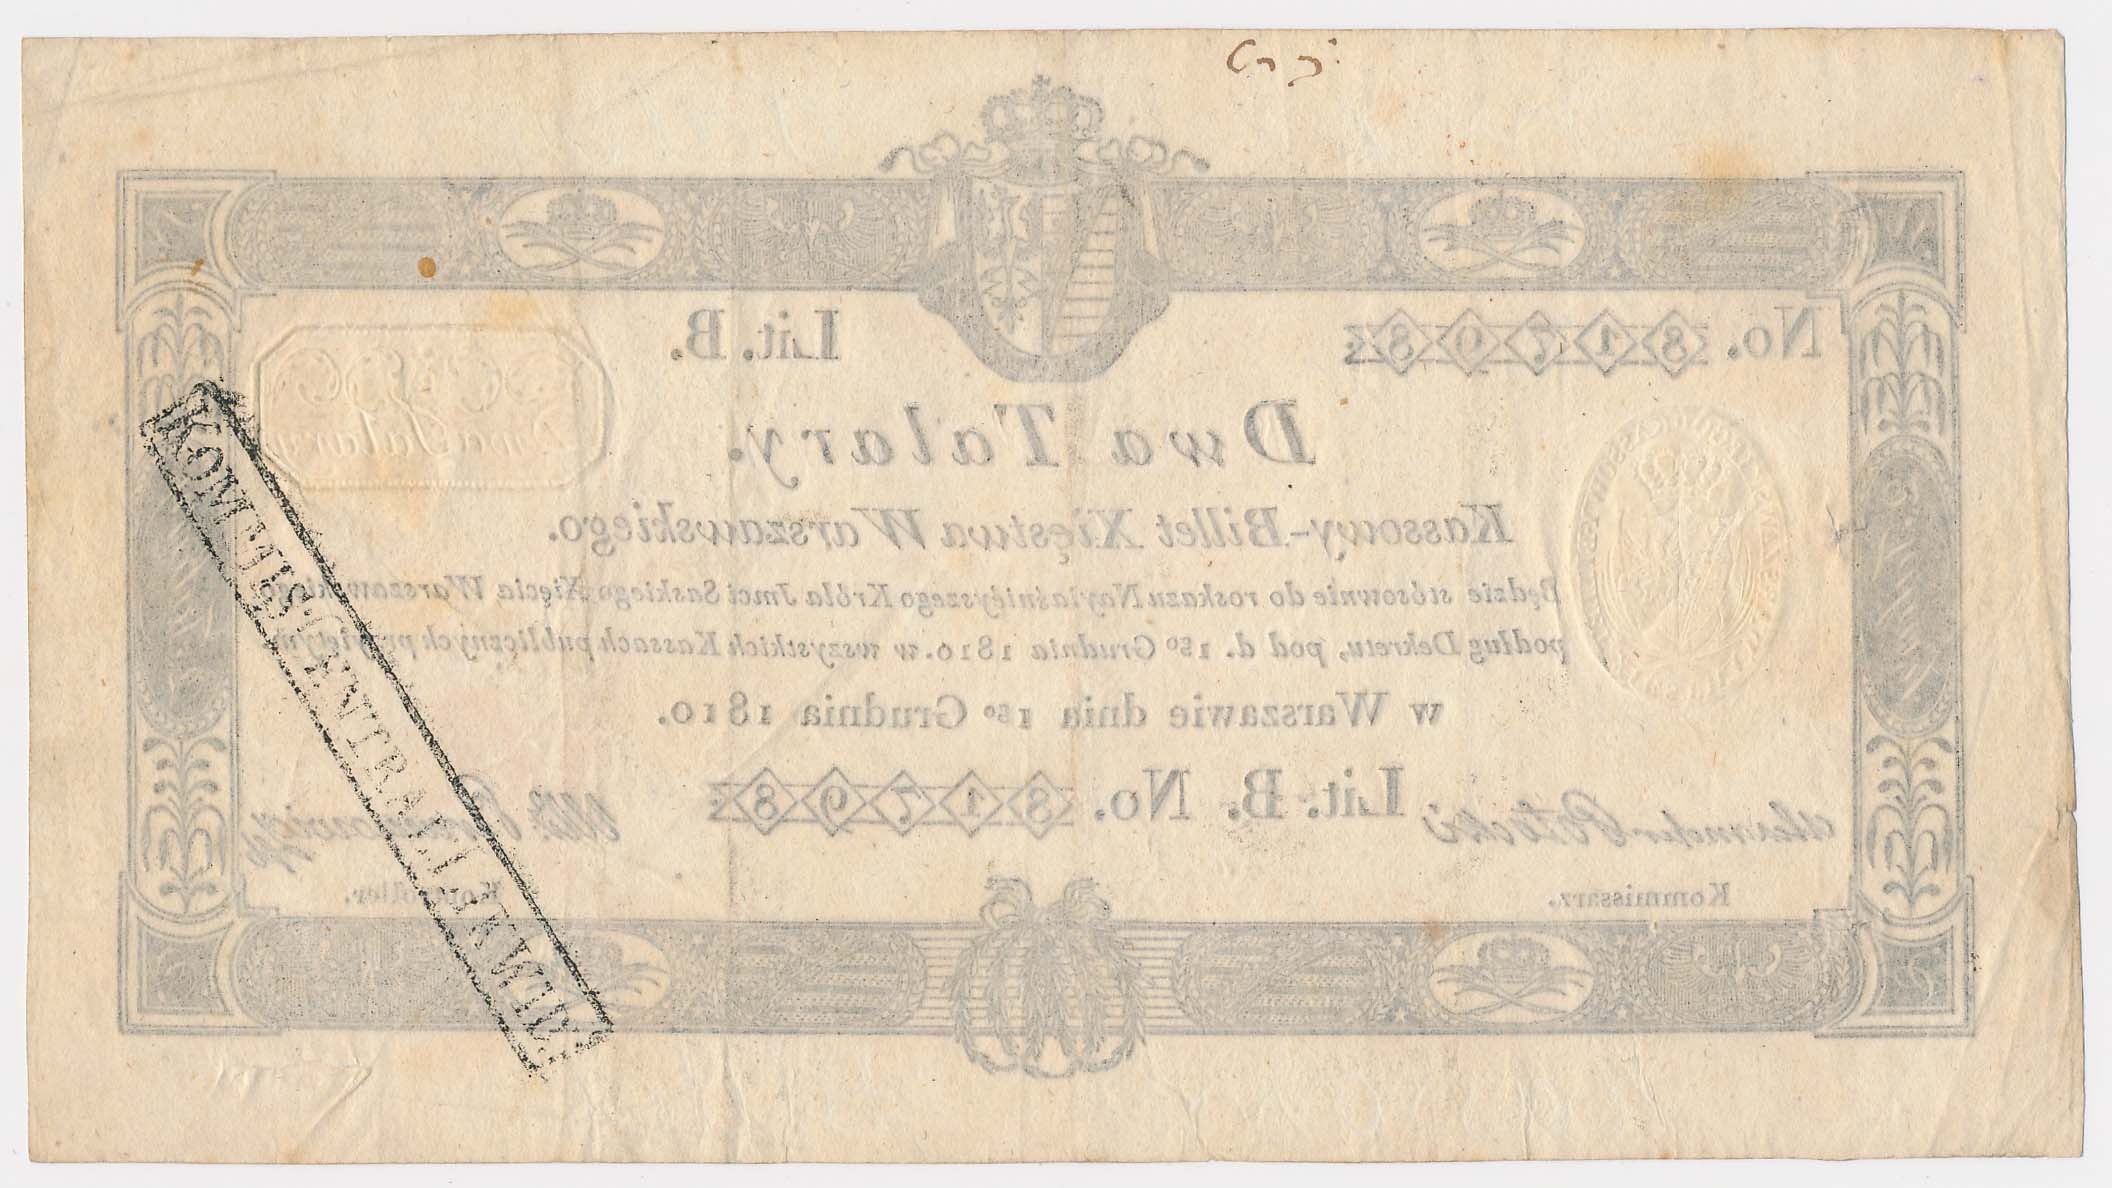 No. 81798
Lit. B.
Dwa Talary
Dwa Talary.
Kassowy-Billet Xięstwa Warszawskiego.
Będzie stósownie do roskazu Nayiaśnieyszego Króla Jmci Saskiego Xięcia Warszawskiego,
podług Dekretu, pod d. 1go Grudnia 1810. w wszystkich Kassach publicznych przyiętym.
w Warszawie dnia 1go Grudnia 1810.
Lit. B. No. 81798
Potocki
Kommissarz.
Kontroller.
KOMMIS: CENTRAL: LIKWID: